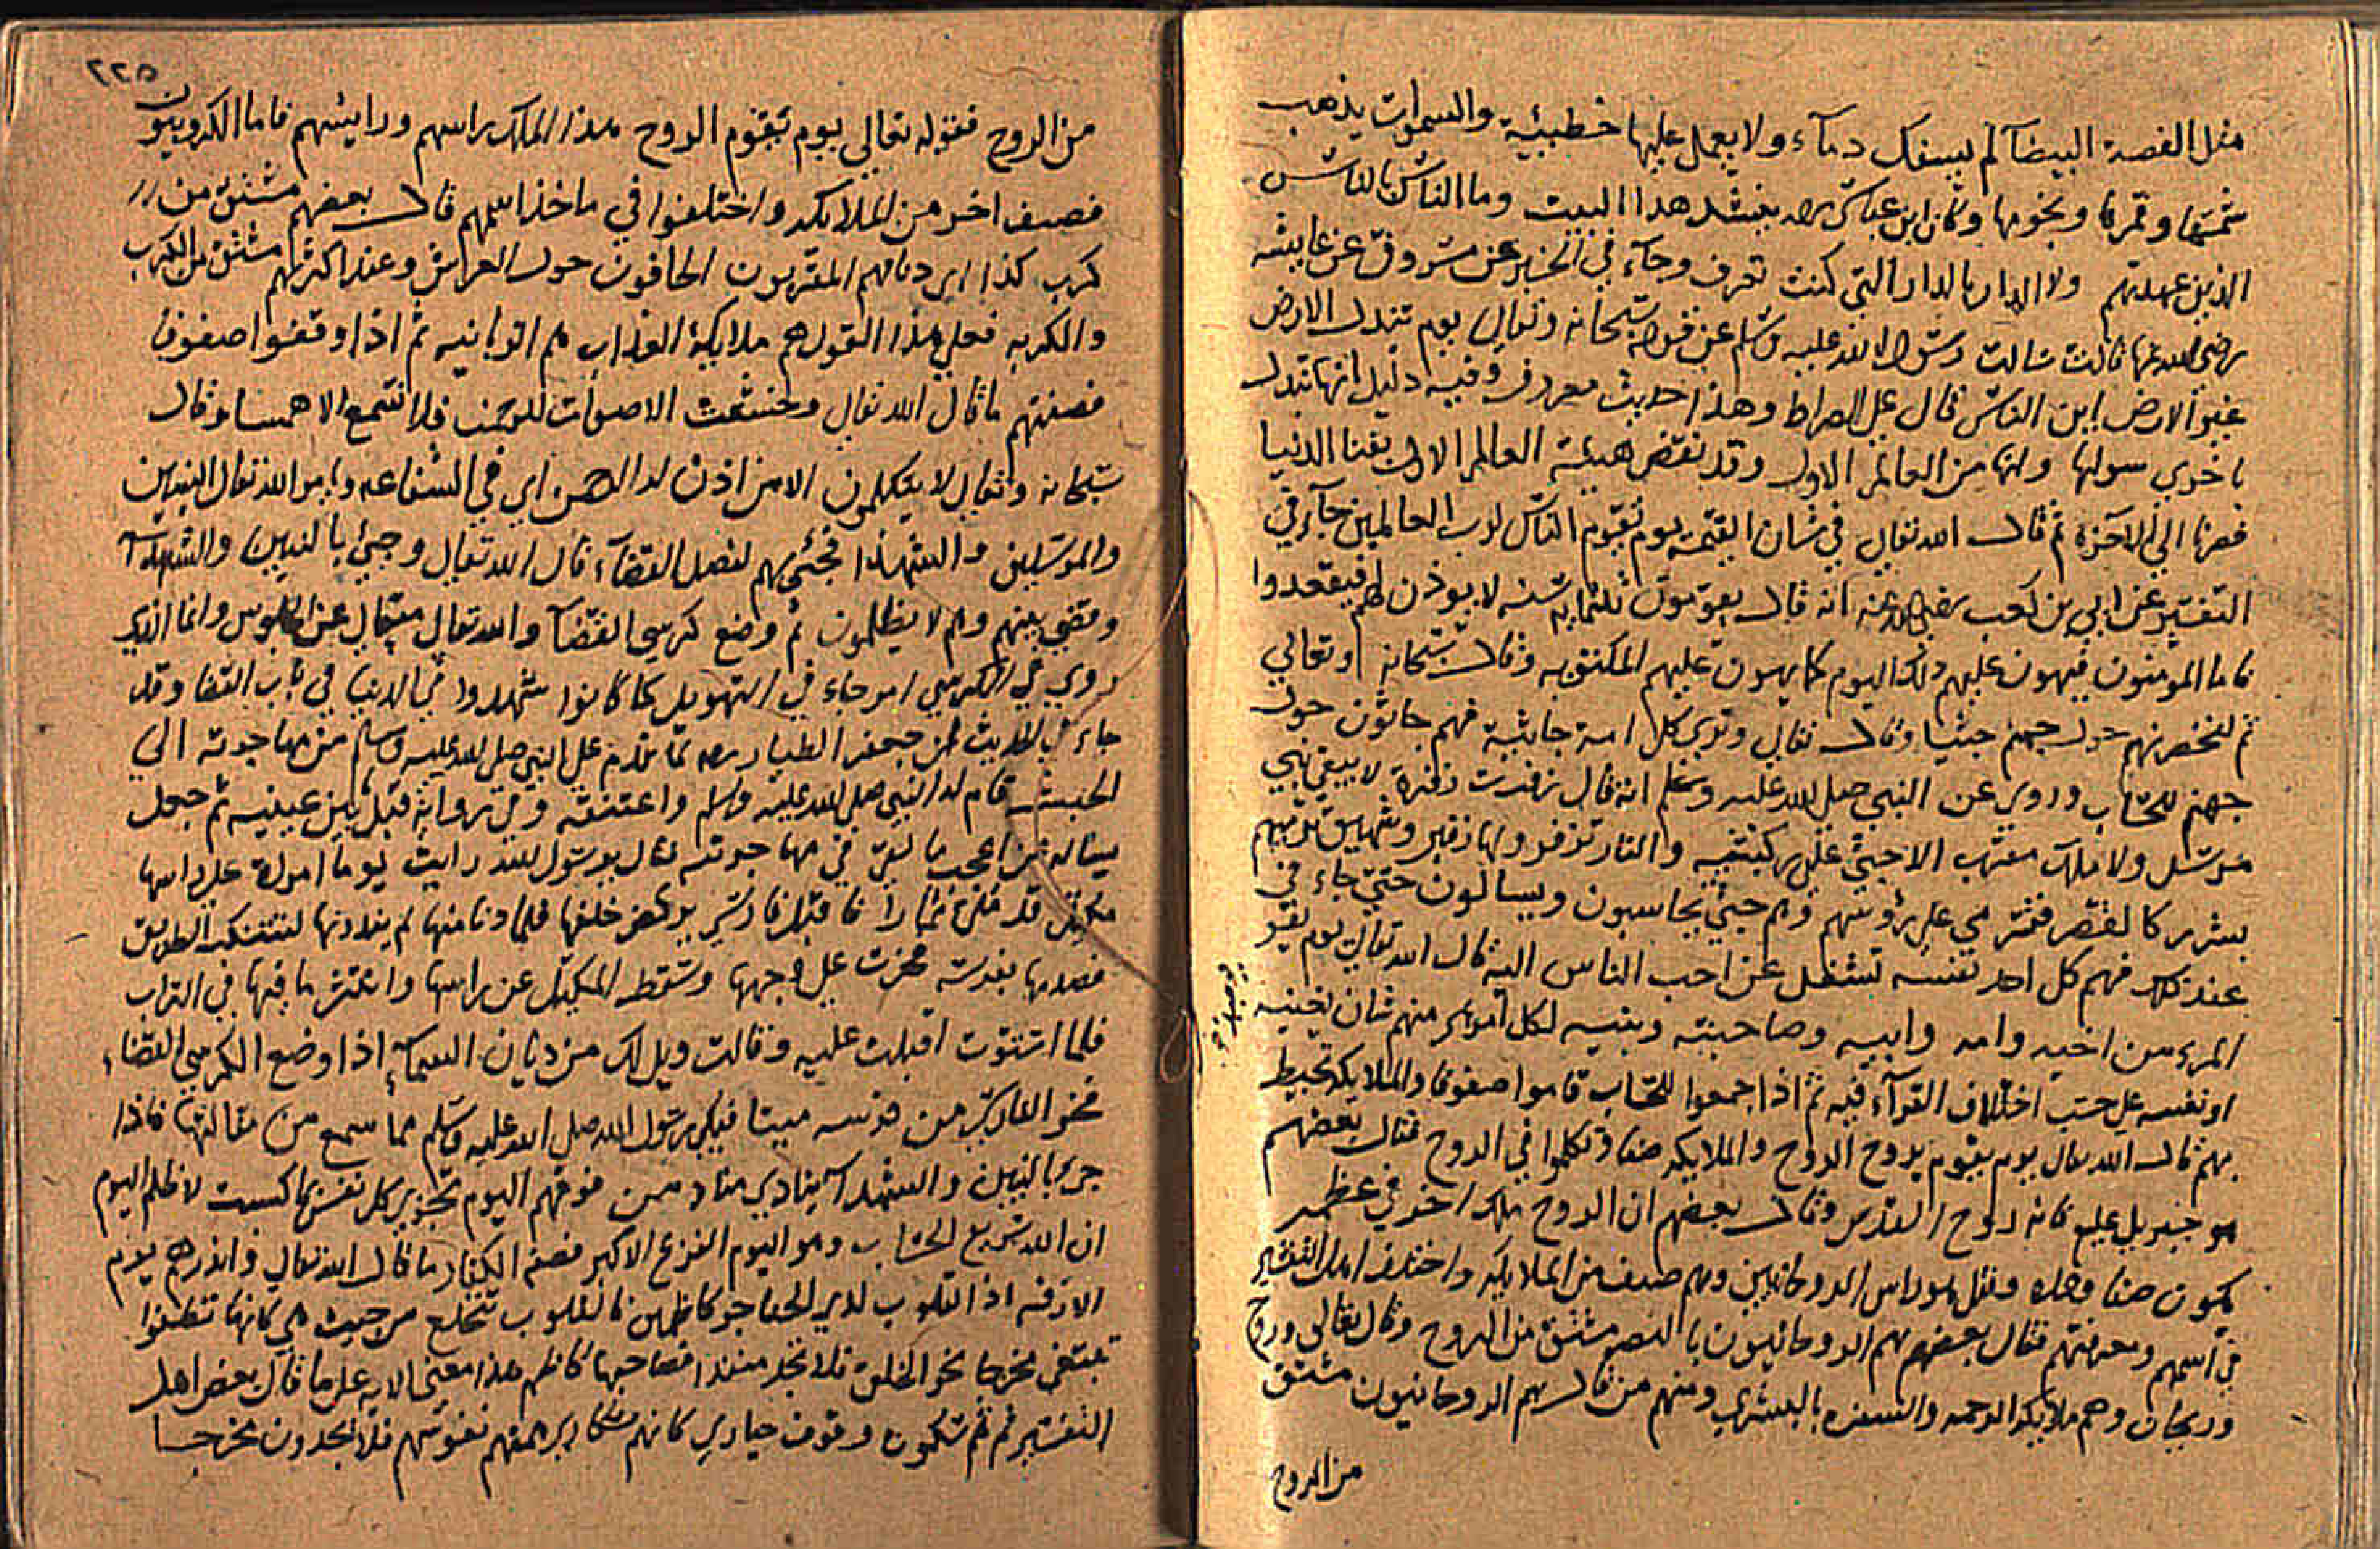 مثل الفضة البيضآ لم يسفك دمآء ولا يعمل عليها خطيئة والسموات يذهب
شمسها وقمرها ونجومها وكان ابن عباس رضه ينشد هذا البيت وما الناس بالناس
الذين عهدتهم ولا الدار بالدار التي كنت تعرف وجآء في الخبر عن مسروق عن عايشه
رضي الله عنها قالت سالت رسول الله عليه وسلم عن قوله سبحانه وتعالي يوم تبدل الارض
غير الارض اين الناس قال علي الصراط وهذا حديث معروف وفيه دليل انها تبدل
باخري سواها وانها من العالم الاول وقد نقض هيئة العالم الاول بفنا الدنيا
فصرنا الي الآخرة ثم قال الله تعالي في شان القيمة يوم يقوم الناس لرب العالمين جآء في
التفسير عن ابي بن كعب رضي الله عنه انه قال يقومون ثلثمايه سنه لا يوذن لهم فيقعدوا
فاما المؤمنون فيهون عليهم ذلك اليوم كما يهون عليهم المكتوبه وقال سبحانه وتعالي
ثم لنحضرنهم حول جهنم جثيا وقال تعالي وتري كل امة جاثية فهم جاثون حول
جهنم للحساب وروي عن النبي صلي الله عليه وسلم انه قال زفرت زفرة لا يبقي نبي
مرسل ولا ملك مقرب الا جثي علي ركبتيه والنار تزفر ولها زفير وشهيق ترميهم
بشرر كالقصر فترمي علي رؤسهم وهم جثي يحاسبون ويسالون حتي جاء في
عند ذلك فهم كل احد نفسه تشغل عن احب الناس اليه قال الله تعالي يوم يفر
المرء من اخيه وامه وابيه وصاحبته وبنيه لكل امرئ منهم شان يغنيه
او نفسه علي حسب اختلاف القرآء فيه ثم اذا جمعوا للحساب قاموا صفوفا والملايكة تحيط
بهم قال الله تعالي يوم يقوم الروح والملايكه صفا وتكلموا في الروح فقال بعضهم
هو جبريل عليه فانه روح القدس وقال بعضهم ان الروح ملك اخر في عظم
يكون صفا وحده وقيل هو راس الروحانيين وهم صنف من الملايكه واختلف اهل التفسير
في اسمهم ومعرفتهم فقال بعضهم هم الروحانيون بالنصب مشتق من الروح وقال تعالي وروح
وريحان وهم ملايكه الرحمه والسفره بالبشري ومنهم من قال هم الروحانيون مشتق
من الروح
٢٢٥
من الروح فقوله تعالي يوم تقوم الروح هذا الملك راسهم ورايسهم فاما الكروبيون
فصنف اخر من الملايكه واختلفوا في ماخذ اسمهم قال بعضهم مشتق من
كرب كذا اي دنا فهم المقربون الحافون حول العرش وعند اكثرهم مشتق من الكرب
والكربه فعلي هذا القول هم ملايكة العذاب هم الزبانيه ثم اذا وقفوا صفوفا
فصفتهم ما قال الله تعالي وخشعت الاصوات للرحمن فلا تسمع الا همسا وقال
سبحانه وتعالي لا يتكلمون الا من اذن له الرحمن اي في الشفاعه ويامر الله تعالي النبيين
والمرسلين والشهدا فجئ بهم لفصل القضآء قال الله تعالي وجئ بالنبيين والشهدآ
وقضي بينهم وهم لا يظلمون ثم وضع كرسي القضآ والله تعالي متعال عن الجلوس وانما الذي
روي في الكرسي امر جاء في التهويل كما كانوا شهدوا في الدنيا في باب القضا وقد
جاء في الحديث عن جعفر الطيار رضه لما قدم علي النبي صلي الله عليه وسلم من مهاجرته الي
الحبشة قام له النبي صلي الله عليه وسلم واعتنقه وفي رواية قبل بين عينيه ثم جعل
يساله عن اعجب ما لقي في مهاجرته فقال يرسول الله رايت يوما امراة علي راسها
مكيل قد ملئ فاقبل فارس يركض خلفها فلما دنا منها لم ينذرها لتتنكب الطريق
فصدمها بفرسه فخرت علي وجهها وسقط المكيل عن راسها وانتثر ما فيها في التراب
فلما استوت اقبلت عليه وقالت ويل لك من ديان السمآء اذا وضع الكرسي القضاء
فخر الفارس من فرسه ميتا فبكي رسول الله صلي الله عليه وسلم مما سمع من مقالتها فاذا
جئ بالنبيين والشهدآ ينادي مناد من فوقهم اليوم تجزي كل نفس بما كسبت لا ظلم اليوم
ان الله سريع الحساب وهو اليوم الفزع الاكبر فصفه الكفار ما قال الله تعالي وانذرهم يوم
الازفه اذ القلوب لدي الحناجر كاظمين فالقلوب تنخلع من حيث هي كانها
تبتغي مخرجا نحو الخلق فلا تجد منفذا فصاحبها كاظم هذا معني الايه علي ما قال بعض اهل
التفسير ثم وقوف حياري كانهم سكاري نفوسهم فلا يجدون مخرجا